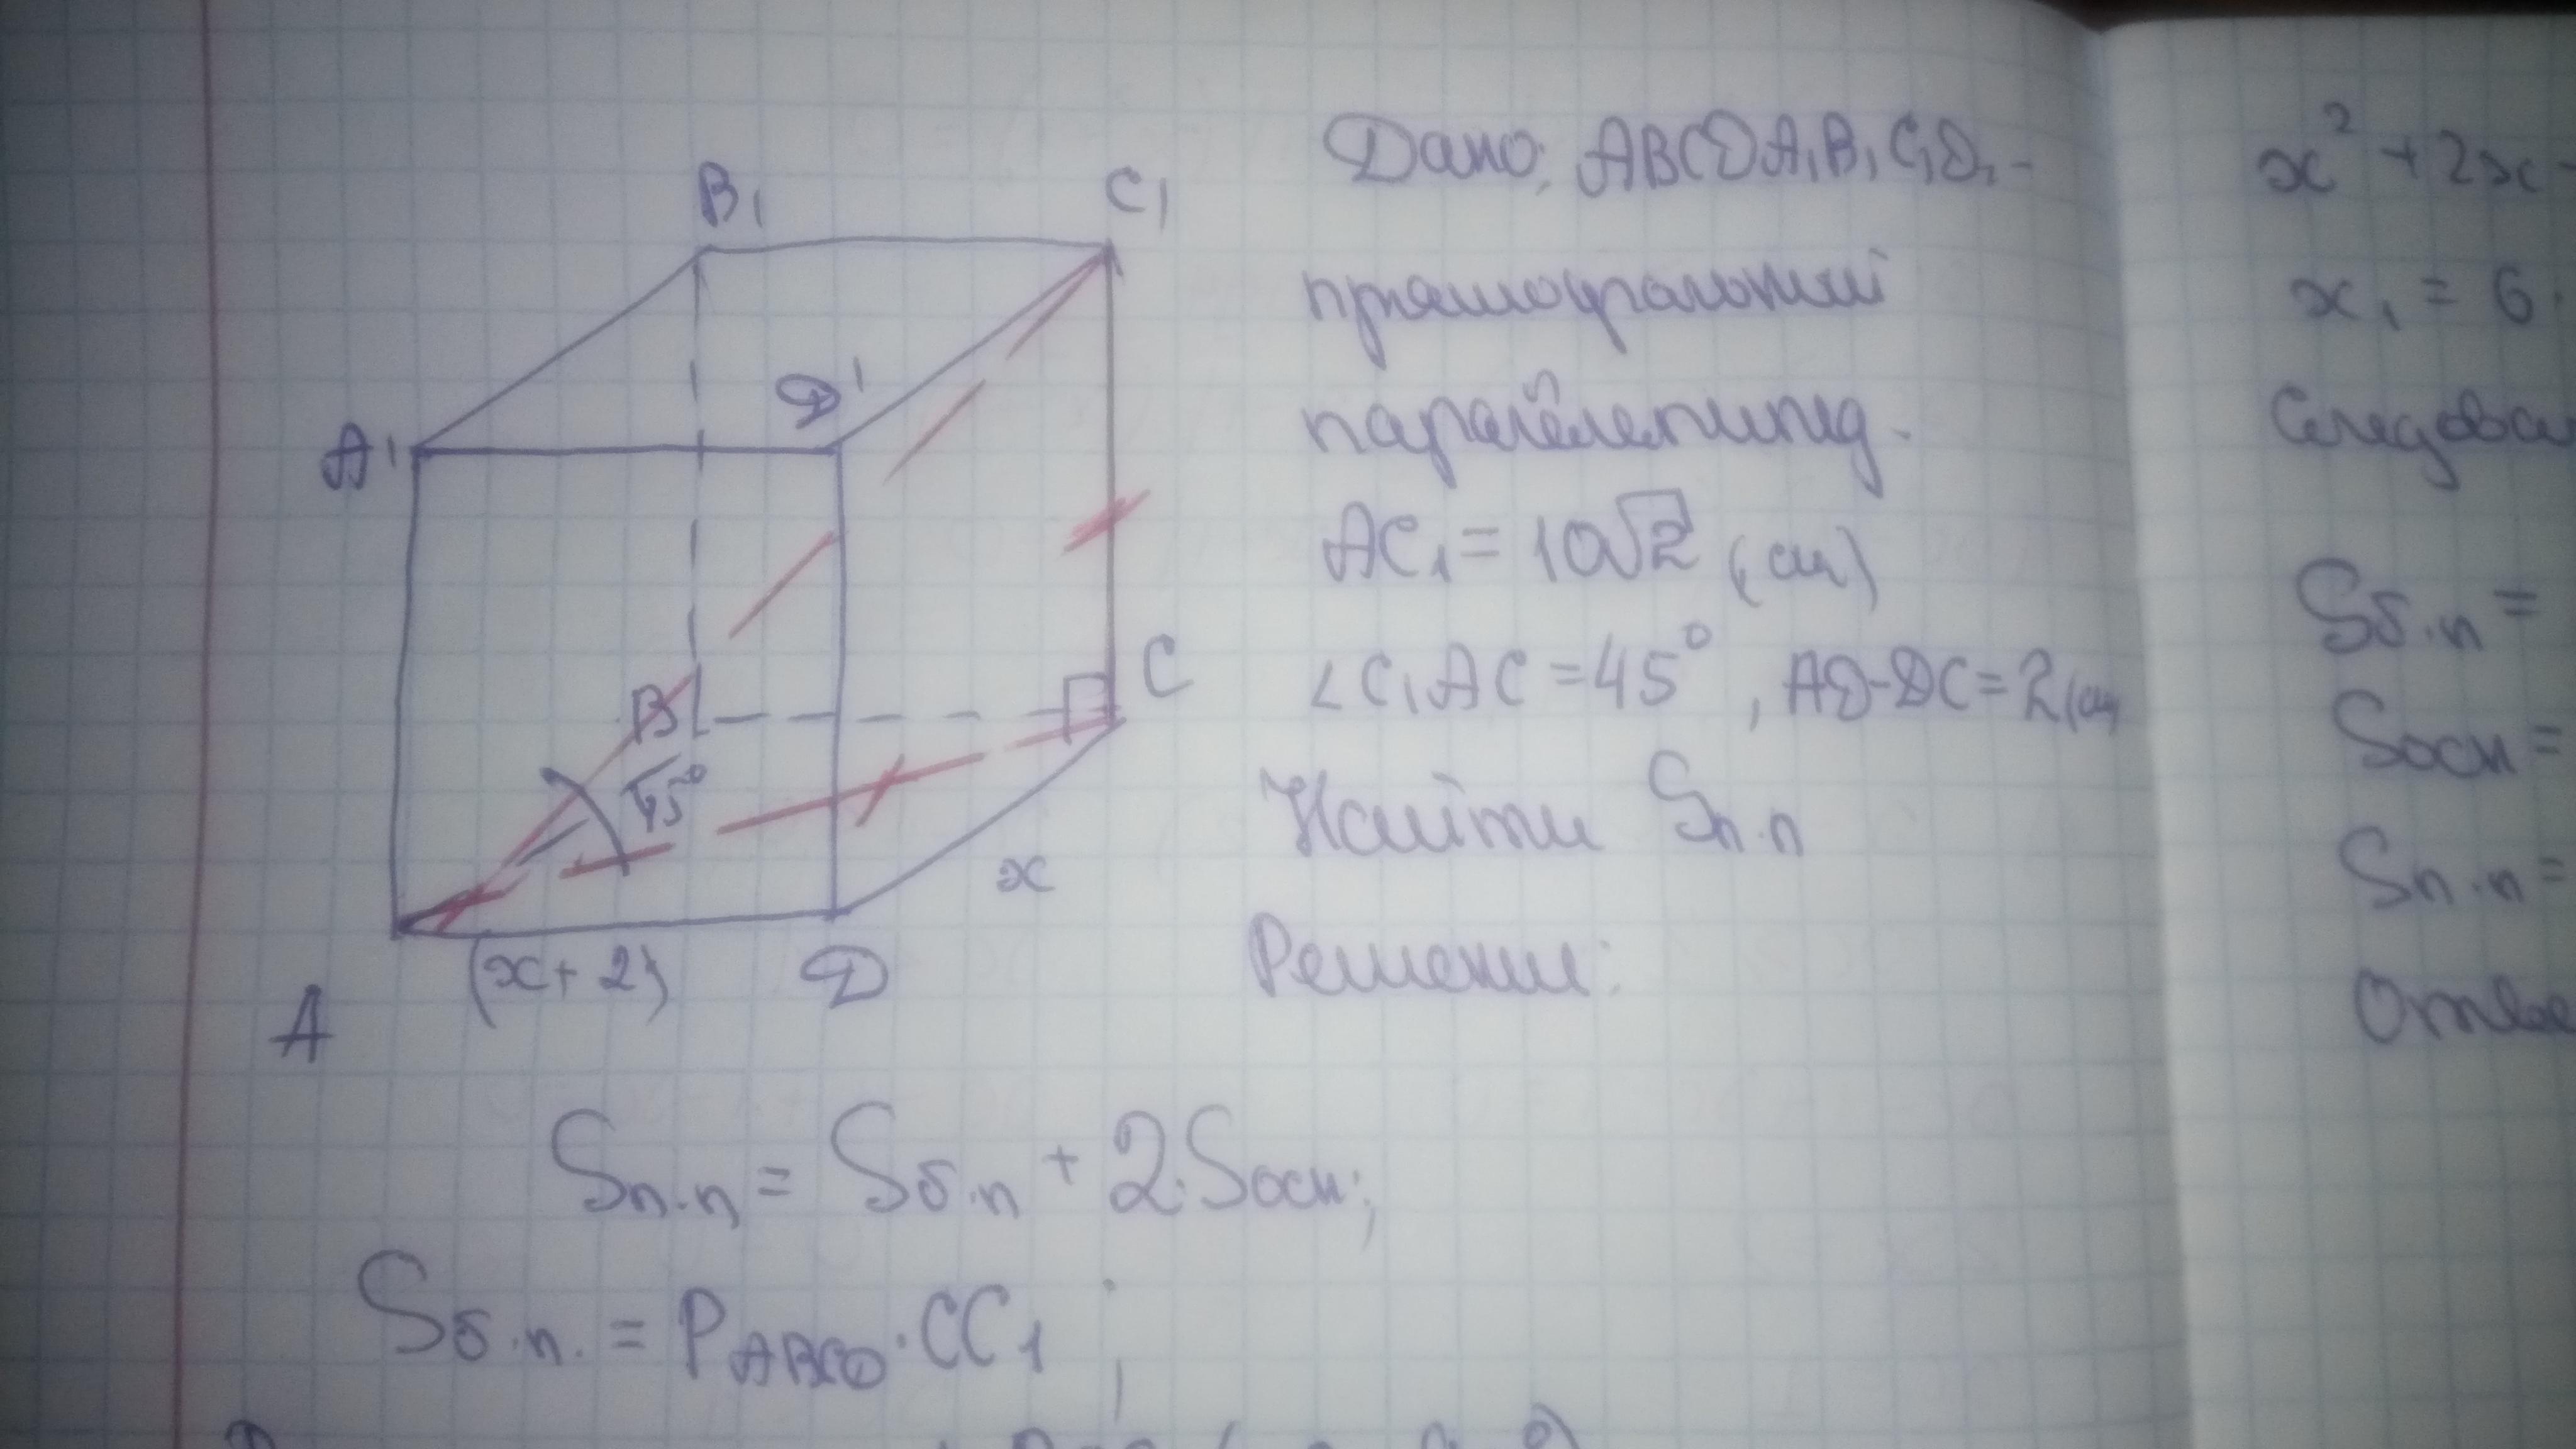 B₁
C₁
A₁
D₁
B
C
45°
x
(x+2)
D
A
Дано: ABCDA₁B₁C₁D₁ -
прямоугольный
параллелепипед.
AC₁ = 10√2 (см)
∠C₁AC = 45°, AD-DC = 2 (см
Найти Sп.п
Решение:
Sп.п = Sб.п + 2·Sосн;
Sб.п. = PABCD · CC₁ ;
x² + 2x -
x₁ = 6
Следова
Sб.п =
Sосн =
Sп.п =
Отве